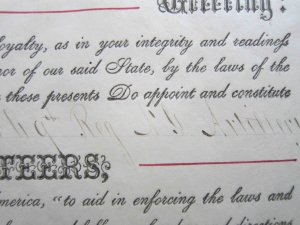 Greeting:
loyalty, as in your integrity and readiness
nor of our said State, by the laws of the
these presents Do appoint and constitute
9th Reg N Y Artillery
TEERS,
America, "to aid in enforcing the laws and